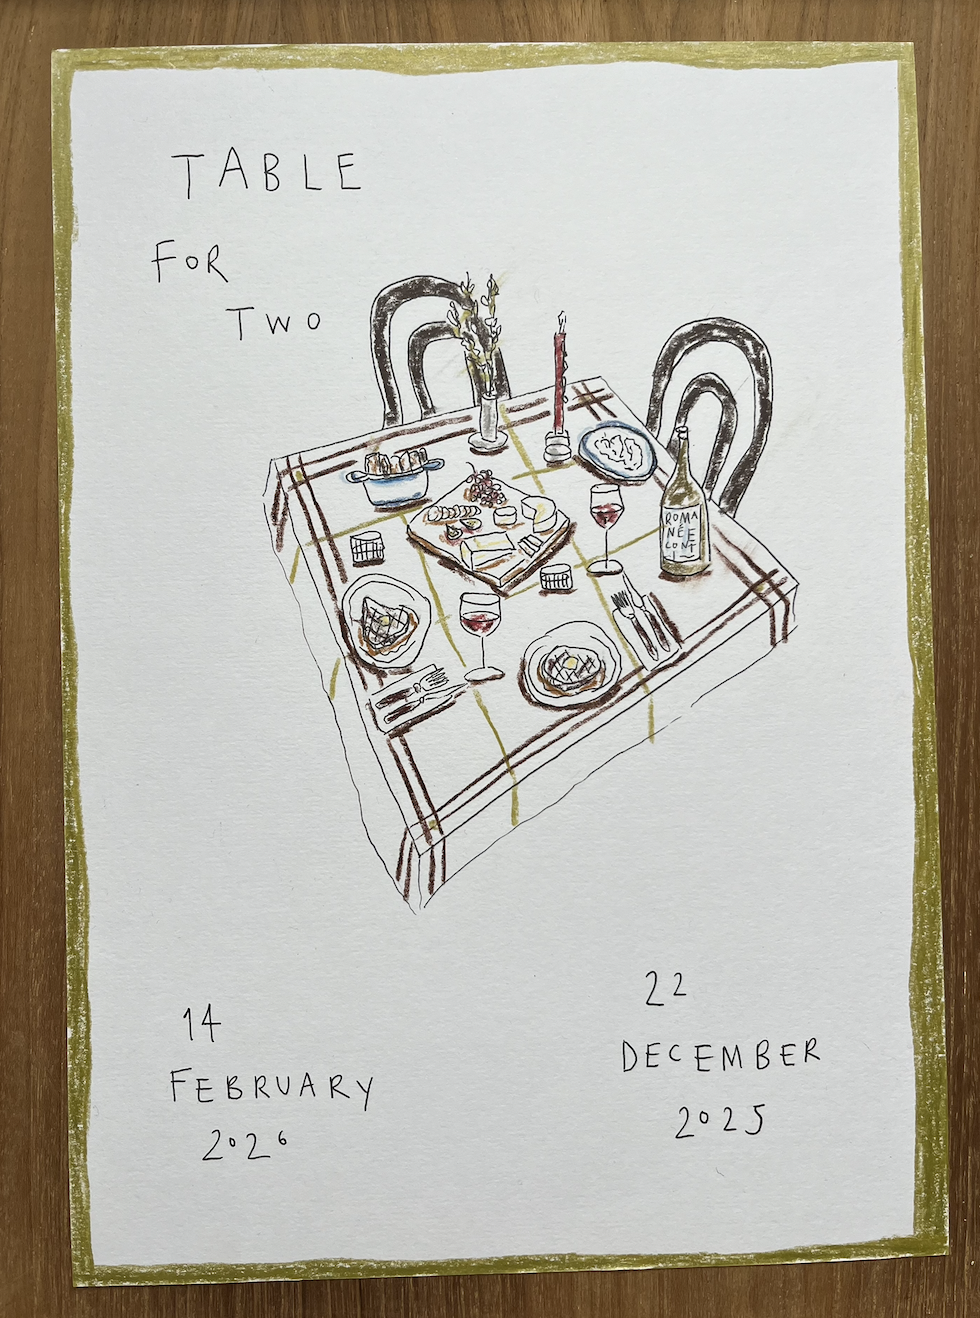 TABLE
FOR
TWO
ROMA
NÉE
CONT
I
14
FEBRUARY
2026
22
DECEMBER
2025